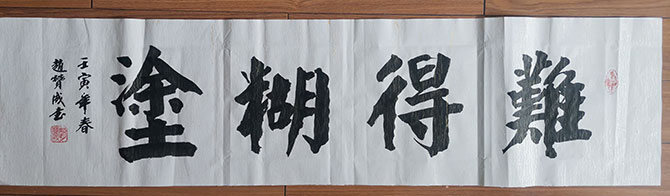 難得糊塗
壬寅年春
趙贊成書